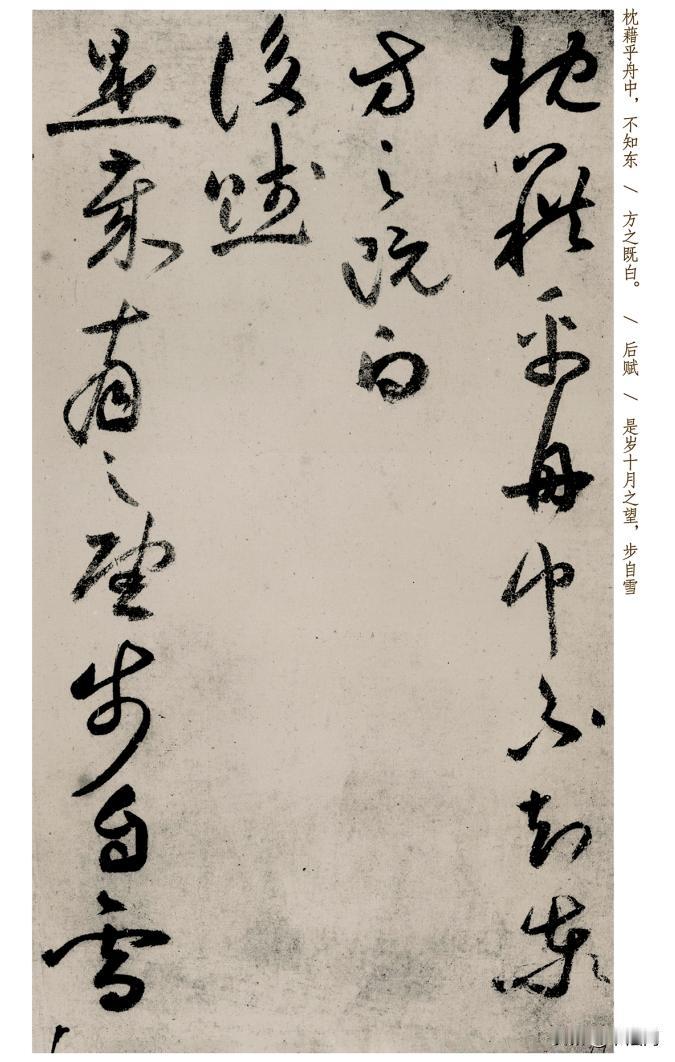 枕藉乎舟中，不知东 \ 方之既白。 \ 后赋 \ 是岁十月之望，步自雪
枕藉乎舟中不知東
方之既白
後賦
是歲十月之望步自雪